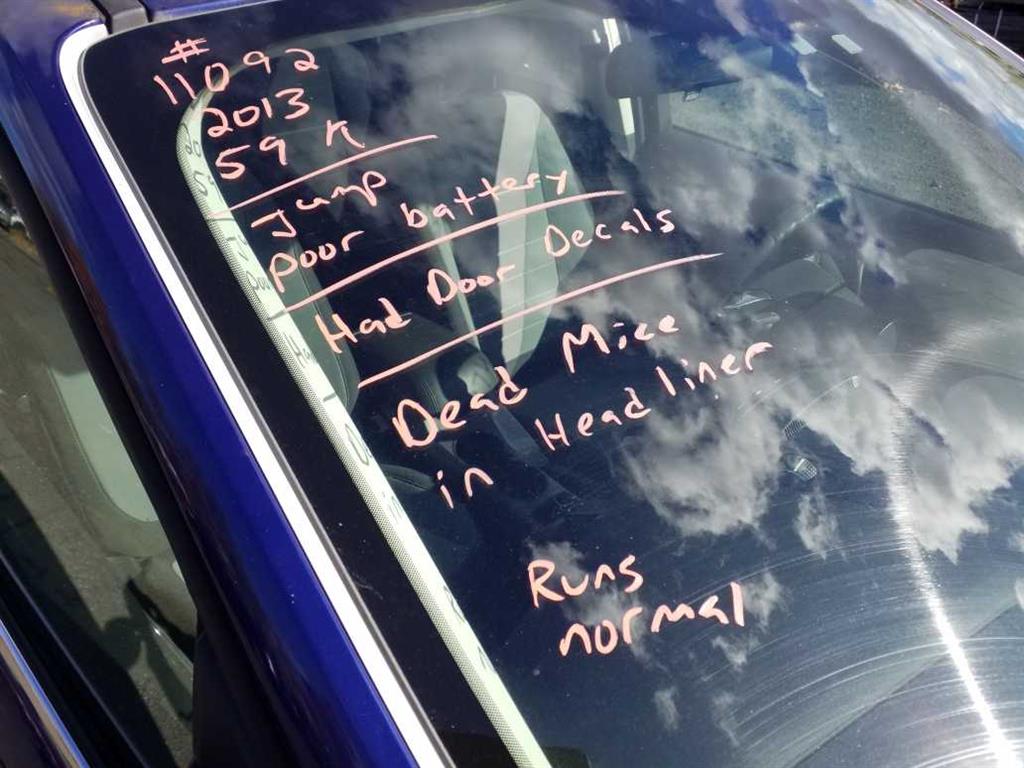 #
11092
2013
59 K
Jump
poor battery
Had Door Decals
Dead Mice
in Headliner
Runs
normal